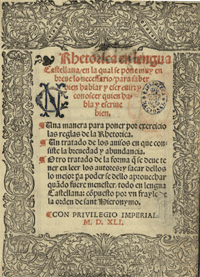 Rhetorica en lengua
Castellana/ en la qual se pone muy en
breue lo necessario/ para saber
bien hablar y escreuir: y
conoscer quien ha-
bla y escriue
bien.
Una manera para poner por exercicio
las reglas de la Rhetorica.
Un tratado de los auisos en que con
siste la breuedad y abundancia.
Otro tratado de la forma q̃ se deue te
ner en leer los autores: y sacar dellos
lo mejor pa poder se dello aprouechar
quãdo fuere menester. todo en lengua
Castellana: cõpuesto por vn frayle de
la orden de sant Hieronymo.
CON PRIVILEGIO IMPERIAL
M. D. XLI.